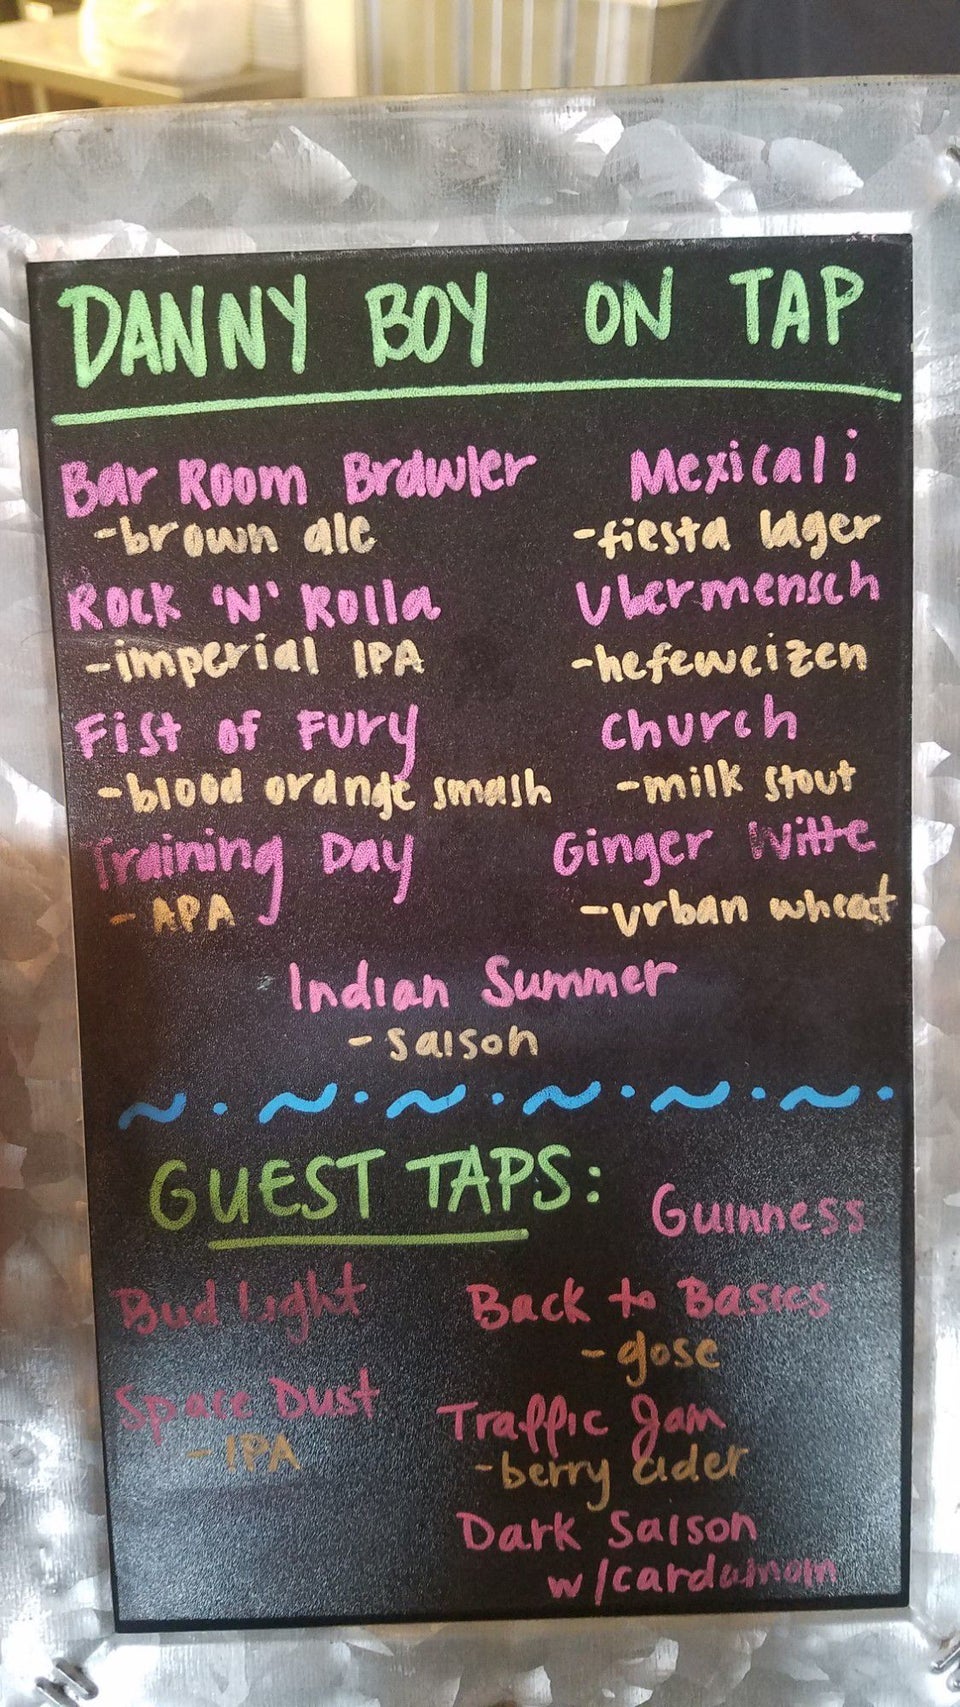 DANNY BOY ON TAP
Bar Room Brawler
-brown ale
Rock 'N' Rolla
-imperial IPA
Fist of Fury
-blood orange smash
Training Day
- APA
Mexicali
-fiesta lager
Ubermensch
-hefeweizen
Church
-milk stout
Ginger Witte
-urban wheat
Indian Summer
- saison
GUEST TAPS:
Bud Light
Space Dust
- IPA
Guinness
Back to Basics
- gose
Traffic Jam
-berry cider
Dark Saison
w/cardamom